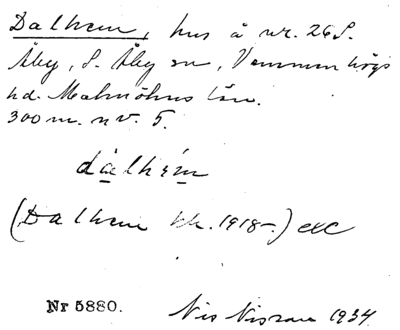 Dalhem, hus å nr. 26 S.
Åby, S. Åby sn, Vemmenhögs
hd. Malmöhus län.
300 m. nv. 5.
dàlhém
(Dalhem kk. 1918-.) exc
Nr 5880. Nis Nisson 1934